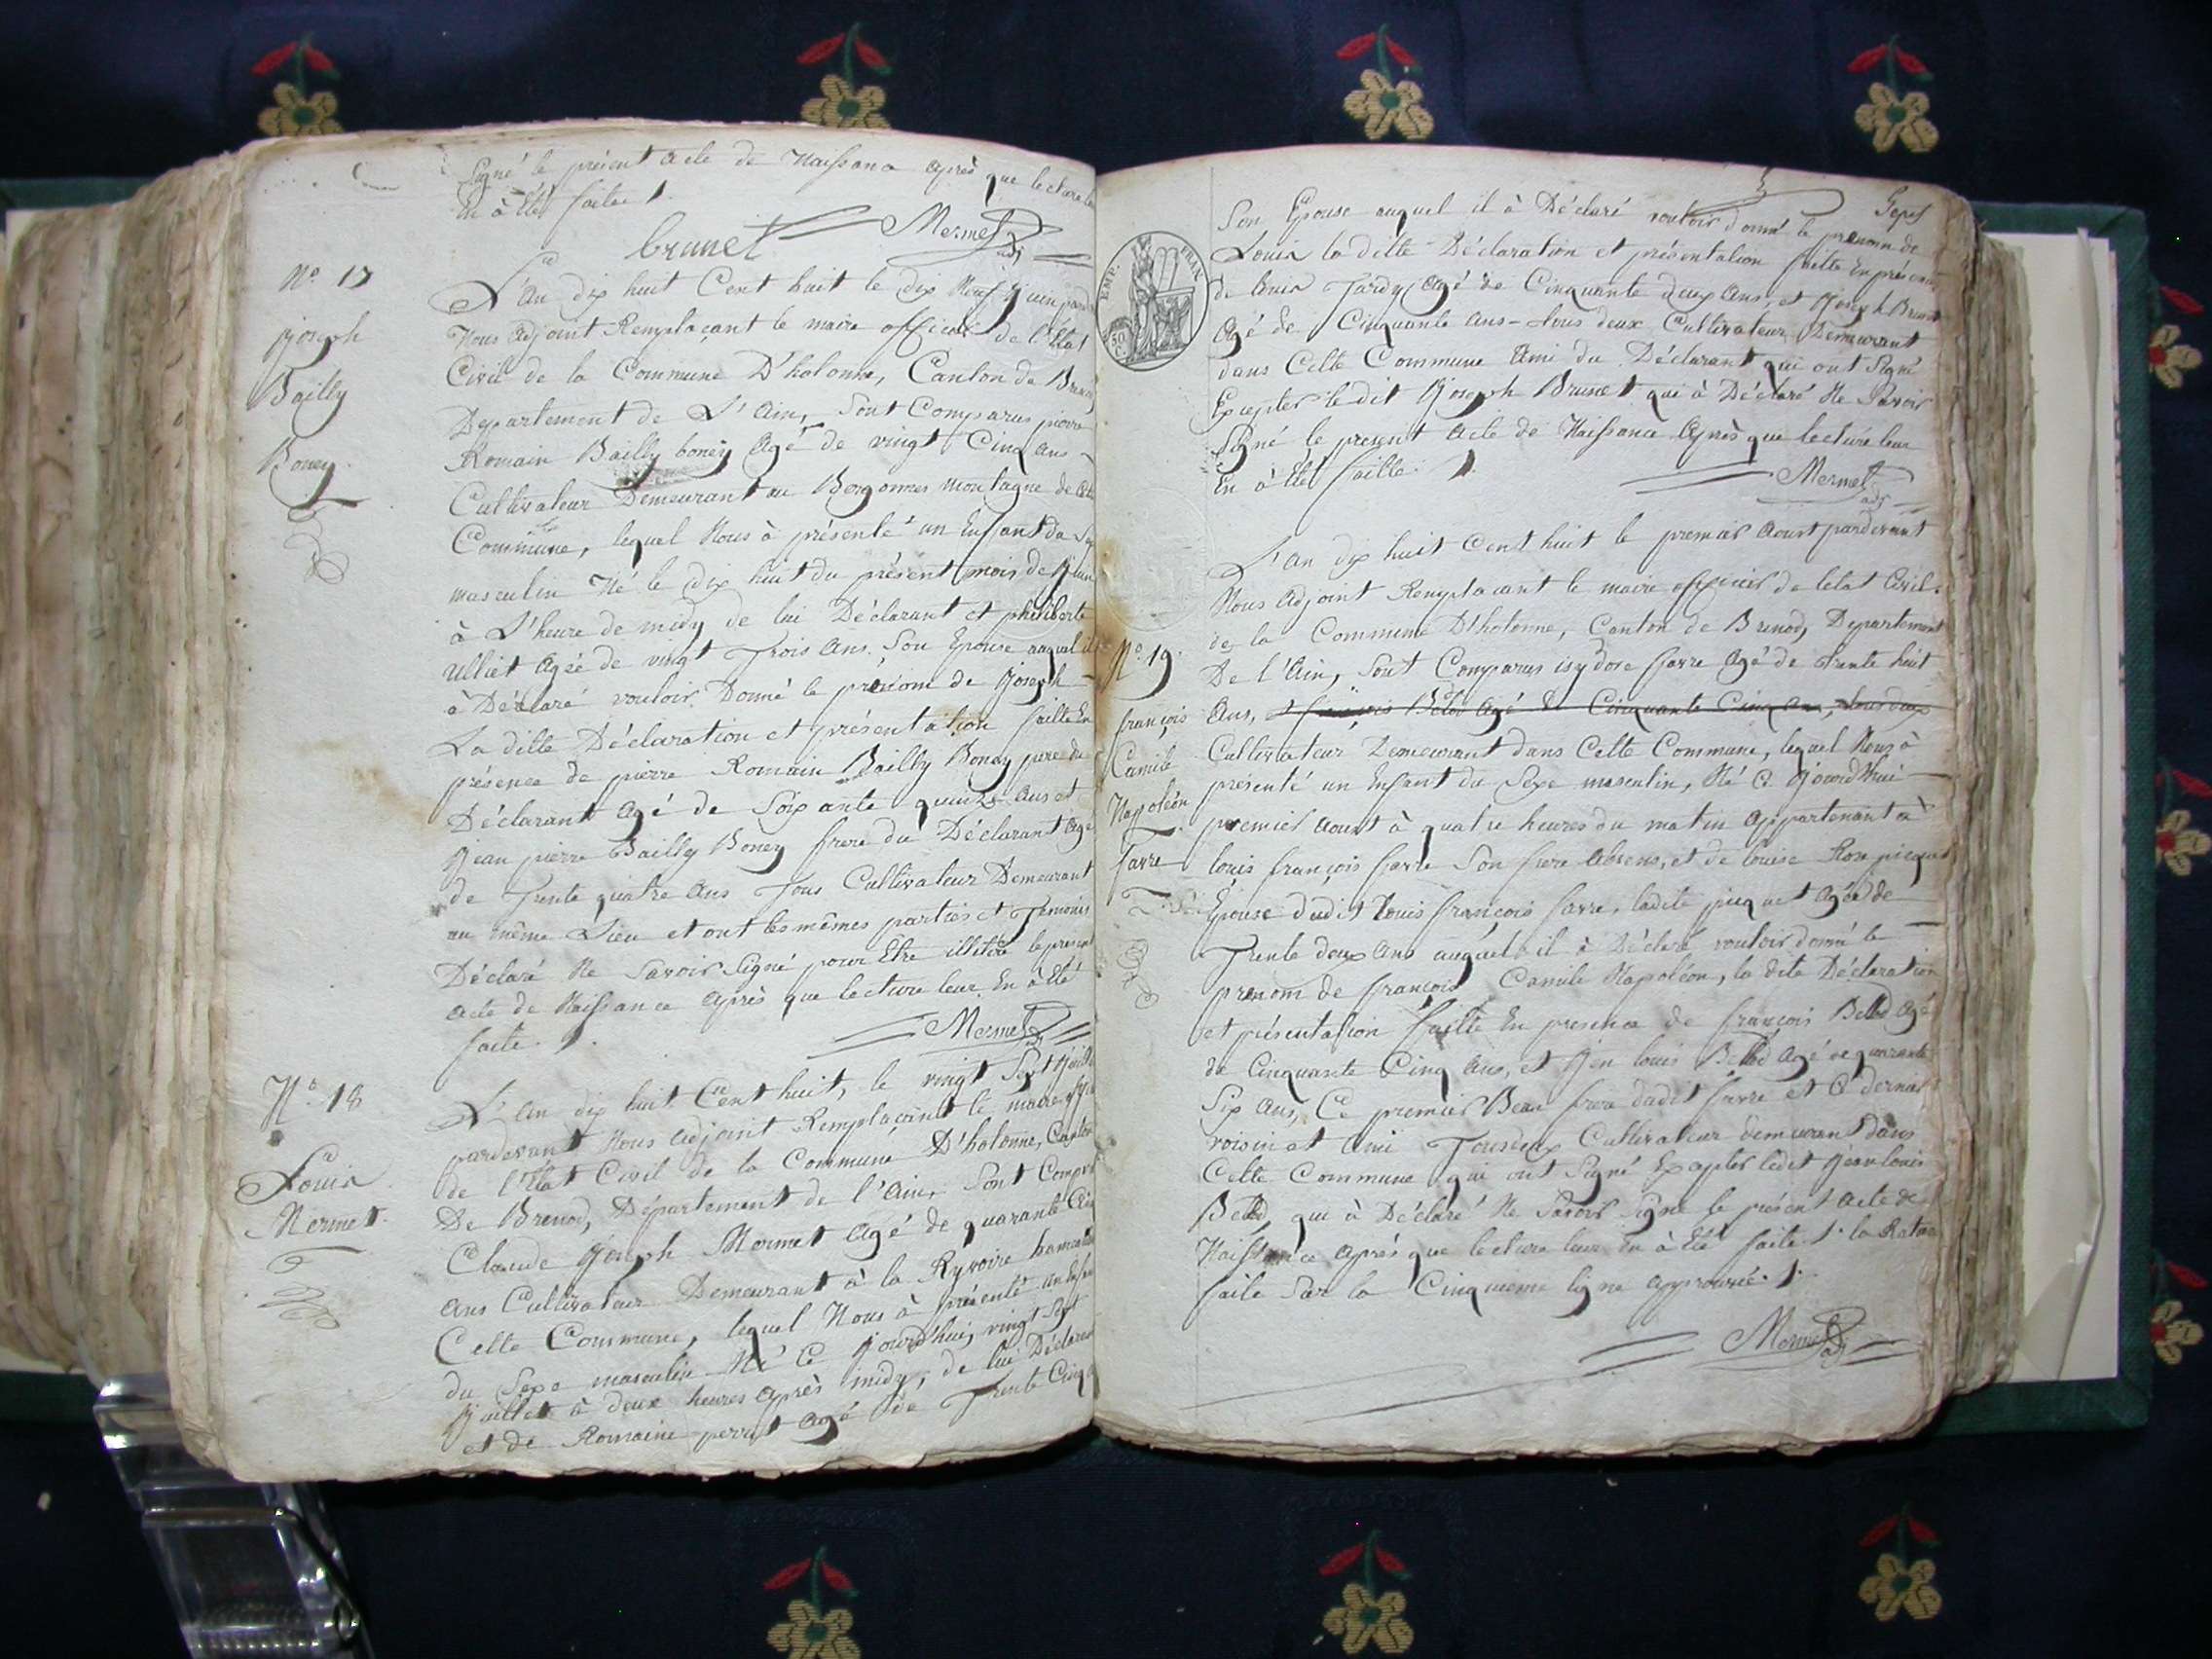 Signé le présent acte de Naissance après que lecture leur
En à Eté faite
brunet Mermet adj
N.o 17
Joseph
Bailly
Boney
L'An dix huit Cent huit le dix Neuf Juin pard
Nous adjoint Remplaçant le maire officier de l'Etat
Civil de la Commune D'hotonne, Canton de Brenod
Departement de L'Ain, Sont Comparus pierre
Romain Bailly boney Agé de vingt Cinq ans
Cultivateur Demeurant au Bergonnes montagne de
Commune, lequel Nous à présenté un Enfant du Sex
masculin Né le dix huit du présent mois de Juin
à L'heure de midy de lui Déclarant et philiberte
Ulliet agée de vingt Trois Ans. Son Epouse auquel il
à Déclaré vouloir Donné le prénom de Joseph
La ditte Déclaration et présentation faitte En
présence de pierre Romain Bailly Boney pere du
Déclarant agé de Soixante quinze Ans et
Jean pierre Bailly Boney frere du Déclarant Agé
de Trente quatre Ans Tous Cultivateur Demeurant
au même Lieu et ont les mêmes parties et Temoins
Déclaré Ne Savoir Signé pour Etre illitéré le present
acte de Naissance Après que lecture leur En à Eté
faite.
Mermet adj
N.o 18
Louis
Mermet
L'An dix huit Cent huit, le vingt Sept Juillet
pardevant Nous adjoint Remplacant le maire offi
de l'Etat Civil de la Commune D'hotonne, Canton
De Brenod, Département de l'Ain, Sont Compar
Claude Joseph Mermet Agé de quarante Cinq
ans Cultivateur Demeurant à la Ryvoire hameau
Cette Commune, lequel Nous à présenté un Enfan
du Sexe masculin Né Ce Jourdhui, vingt Sept
Juillet à deux heures Après midy, de lui Déclarant
et de Romaine perrot agé de Trente Cinq a
Son Epouse auquel il à Déclaré vouloir donné le prenom de
Louis la ditte Déclaration et présentation faitte En présence
de louis Tardy Agé de Cinquante deux Ans, et Joseph Brunet
Agé de Cinquante Ans - Tous deux Cultivateur Demeurant
dans Cette Commune Ami du Déclarant qui ont Signé
Excepter le dit Joseph Brunet qui à Déclaré Ne Savoir
Signé le present Acte de Naissance Après que lecture leur
En à Eté faitte.
Mermet adj
EMP. FRAN.
50 C
L'An dix huit Cent huit le premier Aoust pardevant
Nous Adjoint Remplacant le maire officier de letat Civil
de la Commune D'hotonne, Canton de Brenod, Departement
De l'Ain, Sont Comparus isydore favre Agé de trente huit
N.o 19
françois
Camile
Napoléon
favre
Ans, et françois Belod Agé de Cinquante Cinq Ans, tous deux
Cultivateur Demeurant dans Cette Commune, lequel Nous à
présenté un Enfant du Sexe masculin, Né Ce Jourd'huï
premier Aoust à quatre heures du matin Appartenant à
louis françois favre Son frere Absens, et de louise Rose picquet
Epouse dudit louis françois favre, ladite picquet Agée de
Trente deux Ans auquel il à Déclaré vouloir donné le
prenom de françois Camile Napoléon, la dite Déclaration
et présentation faitte En presence de françois Belod Agé
de Cinquante Cinq Ans, et Jean louis Belod Agé de quarante
Six Ans, Ce premier Beau frere dudit favre et Ce dernier
voisin et Ami Tous deux Cultivateur demeurant dans
Cette Commune qui ont Signé Excepter ledit Jean louis
Belod, qui à Déclaré Ne Savoir Signé le présent Acte de
Naissance Après que lecture leur En à Eté faite la Rature
faite Sur la Cinquieme ligne Approuvée.
Mermet adj